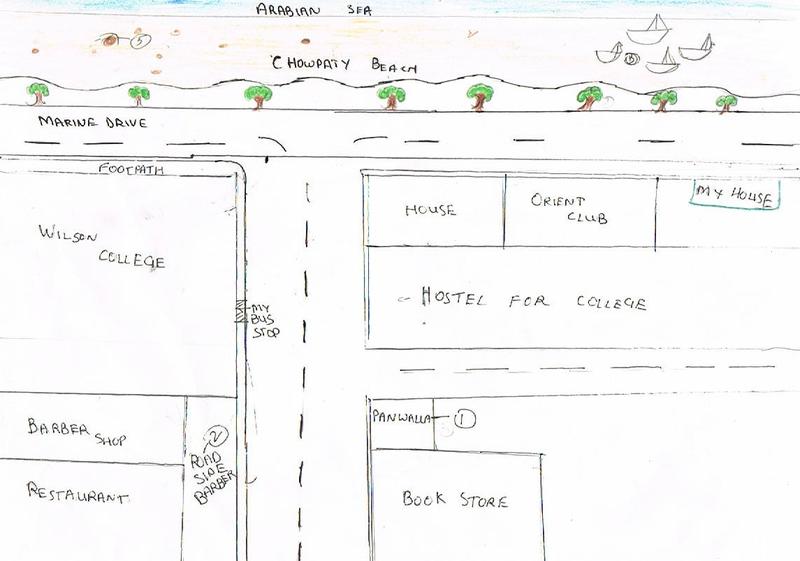 ARABIAN SEA
5
5
CHOWPATY BEACH
MARINE DRIVE
FOOTPATH
MY HOUSE
HOUSE
ORIENT
CLUB
WILSON
COLLEGE
HOSTEL FOR COLLEGE
MY
BUS
STOP
PANWALLA
1
BARBER
SHOP
2
ROAD
SIDE
BARBER
RESTAURANT
BOOK STORE